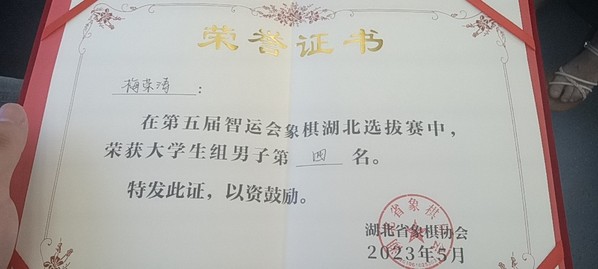 荣誉证书
梅荣涛：
在第五届智运会象棋湖北选拔赛中，
荣获大学生组男子第 四 名。
特发此证，以资鼓励。
湖北省象棋协会
2023年5月